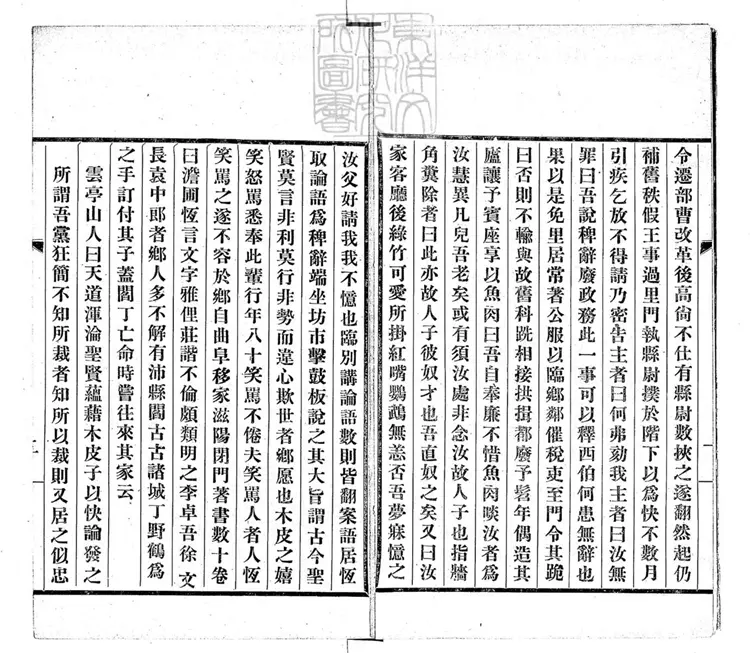 令遷部曹改革後高尙不仕有縣尉數挾之遂翻然起仍
補舊秩假王事過里門執縣尉撲於階下以爲快不數月
引疾乞放不得請乃密告主者曰何弗劾我主者曰汝無
罪曰吾說稗辭廢政務此一事可以釋西伯何患無辭也
果以是免里居常著公服以臨鄕鄰催稅吏至門令其跪
曰否則不輸與故舊科跣相接拱揖都廢予髫年偶造其
廬讓予賓座享以魚肉曰吾自奉廉不惜魚肉啖汝者爲
汝慧異凡兒吾老矣或有須汝處非念汝故人子也指牆
角糞除者曰此亦故人子彼奴才也吾直奴之矣又曰汝
家客廳後綠竹可愛所掛紅嘴鸚鵡無恙否吾夢寐憶之
汝父好請我我不憶也臨別講論語數則皆翻案語居恆
取論語爲稗辭端坐坊市擊鼓板說之其大旨謂古今聖
賢莫言非利莫行非勢而違心欺世者鄕愿也木皮之嬉
笑怒罵悉奉此輩行年八十笑罵不倦夫笑罵人者人恆
笑罵之遂不容於鄕自曲阜移家滋陽閉門著書數十卷
曰澹圃恆言文字雅俚莊諧不倫頗類明之李卓吾徐文
長袁中郎者鄕人多不解有沛縣閻古古諸城丁野鶴爲
之手訂付其子蓋閻丁亡命時嘗往來其家云
雲亭山人曰天道渾淪聖賢蘊藉木皮子以快論發之
所謂吾黨狂簡不知所裁者知所以裁則又居之似忠